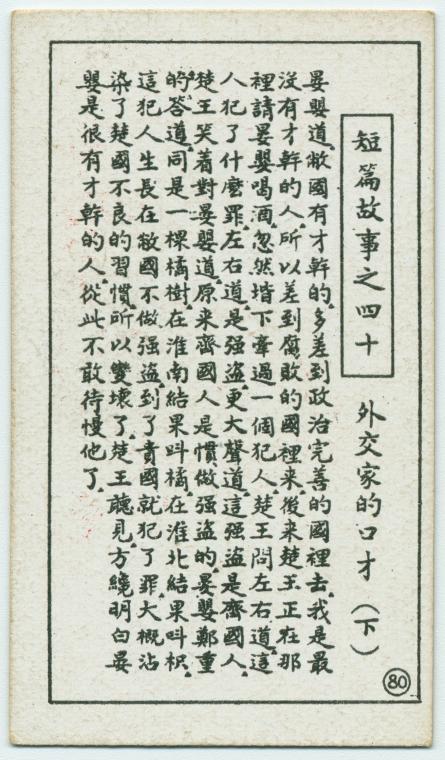 短篇故事之四十
外交家的口才（下）
晏嬰道、敝國有才幹的、多差到政治完善的國裡去、我是最
沒有才幹的人、所以差到腐敗的國裡來、後來楚王正在那
裡請晏嬰喝酒、忽然堦下牽過一個犯人、楚王問左右道、這
人犯了什麼罪、左右道、是强盜、更大聲道、這强盜是齊國人、
楚王笑着對晏嬰道、原來齊國人是慣做强盜的、晏嬰鄭重
的答道、同是一棵橘樹、在淮南結果叫橘、在淮北結果叫枳、
這犯人生長在敝國不做强盜、到了貴國就犯了罪、大概沾
染了楚國不良的習慣、所以變壞了、楚王聽見、方纔明白晏
嬰是很有才幹的人、從此不敢待慢他了、
80